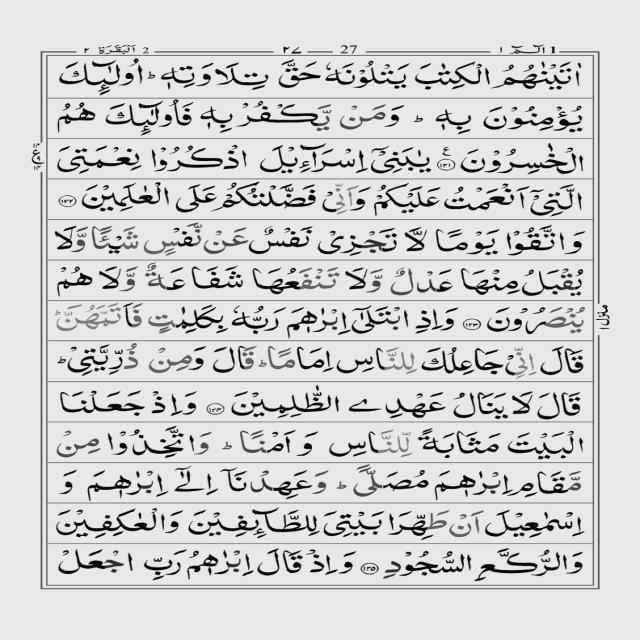 الٓمّٓ ١ 27 ٢٧ البقرة ٢
اٰتَيْنٰهُمُ الْكِتٰبَ يَتْلُوْنَهٗ حَقَّ تِلَاوَتِهٖ ؕ اُولٰٓئِكَ
يُؤْمِنُوْنَ بِهٖ ؕ وَمَنْ يَّكْفُرْ بِهٖ فَاُولٰٓئِكَ هُمُ
الْخٰسِرُوْنَ ۧ ﴿۱۲۱﴾ يٰبَنِيْٓ اِسْرَآءِيْلَ اذْكُرُوْا نِعْمَتِيَ
الَّتِيْٓ اَنْعَمْتُ عَلَيْكُمْ وَاَنِّيْ فَضَّلْتُكُمْ عَلَى الْعٰلَمِيْنَ ﴿۱۲۲﴾
وَاتَّقُوْا يَوْمًا لَّا تَجْزِيْ نَفْسٌ عَنْ نَّفْسٍ شَيْـًٔا وَّلَا
يُقْبَلُ مِنْهَا عَدْلٌ وَّلَا تَنْفَعُهَا شَفَاعَةٌ وَّلَا هُمْ
يُنْصَرُوْنَ ﴿۱۲۳﴾ وَاِذِ ابْتَلٰٓى اِبْرٰهٖمَ رَبُّهٗ بِكَلِمٰتٍ فَاَتَمَّهُنَّ ؕ
قَالَ اِنِّيْ جَاعِلُكَ لِلنَّاسِ اِمَامًا ؕ قَالَ وَمِنْ ذُرِّيَّتِيْ ؕ
قَالَ لَا يَنَالُ عَهْدِي الظّٰلِمِيْنَ ﴿۱۲۴﴾ وَاِذْ جَعَلْنَا
الْبَيْتَ مَثَابَةً لِّلنَّاسِ وَاَمْنًا ؕ وَاتَّخِذُوْا مِنْ
مَّقَامِ اِبْرٰهٖمَ مُصَلًّى ؕ وَعَهِدْنَآ اِلٰٓى اِبْرٰهٖمَ وَ
اِسْمٰعِيْلَ اَنْ طَهِّرَا بَيْتِيَ لِلطَّآئِفِيْنَ وَالْعٰكِفِيْنَ
وَالرُّكَّعِ السُّجُوْدِ ﴿۱۲۵﴾ وَاِذْ قَالَ اِبْرٰهٖمُ رَبِّ اجْعَلْ
منزل ١